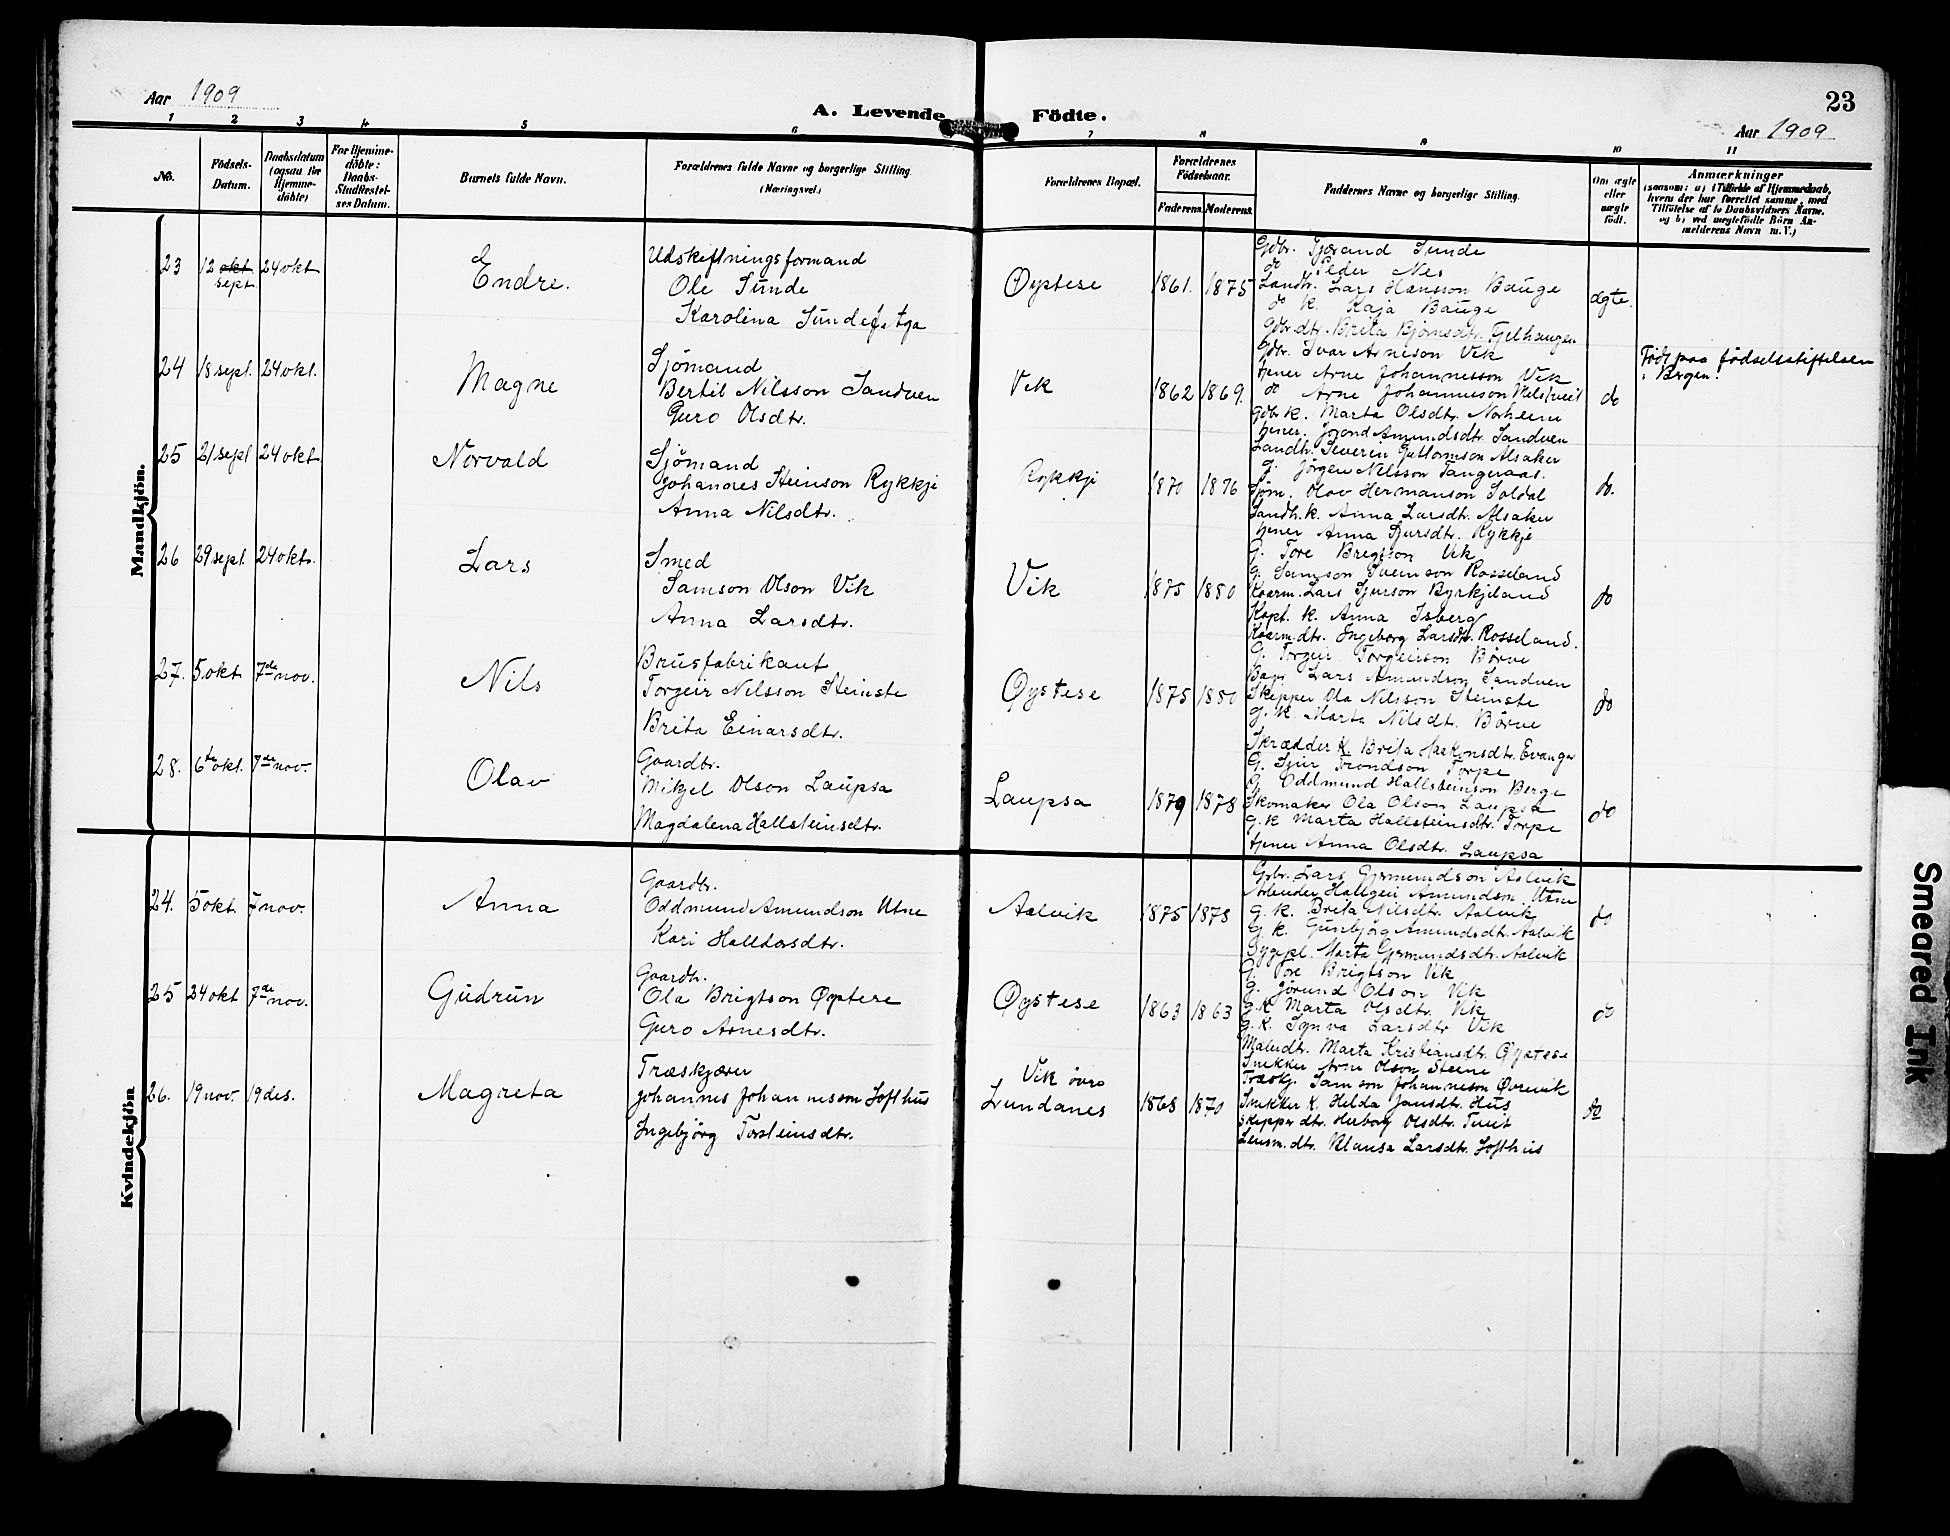 Aar 1909
A. Levende Födte.
23
Aar 1909
1 2 3 4 5 6 7 8 9 10 11
No.
Födsels-Datum.
Daabsdatum (ogsaa for Hjemme-döbte)
For Hjemme-döbte: Daabs-Stadfæstel-ses Datum.
Barnets fulde Navn.
Forældrenes fulde Navne og borgerlige Stilling. (Næringsvei.)
Forældrenes Bopæl.
Forældrenes Födselsaar.
Faderens. Moderens.
Faddernes Navne og borgerlige Stilling.
Om ægte eller uægte födt.
Anmærkninger
(saasom: a) i Tilfælde af Hjemmedaab, hvem der har forrettet samme, med Tilföielse af to Daabsvidners Navne, og b) ved uægtefödte Börn An-melderens Navn m. V.)
Mandkjön.
23 12 okt sept 24 okt Endre.
Udskiftningsformand
Ole Sunde
Karolina Sunde f. Aga
Øystese 1861. 1875
Gdbr. Tjerand Sunde
do Peder Nes
Landh. Lars Hansson Bauge
do k. Kaja Bauge
Gdbr.dtr. Brita Bjørnsdtr. Fjelhaugen
ægte.
24 18 sept. 24 okt. Magne
Sjömand
Bertil Nilsson Sandven
Guro Olsdtr.
Vik 1862 1869.
Gdbr. Ivar Arneson Vik
tjener Arne Johannesson Vik
do Arne Johannesson Melstveit
Gdbr k. Marta Olsdtr. Norheim
tjener. Jorond Amundsdtr. Sandven
do
Födt paa födselsstiftelsen i Bergen.
25 21 sept 24 okt Norvald
Sjömand
Johannes Steinson Rykkje
Anna Nilsdtr.
Rykkje 1870 1876
Landh. Severin Guttomson Alsaker
g. Jörgen Nilsson Tangeraas.
Sjöm. Olav Hermanson Soldal
Landh. k. Anna Larsdtr. Alsaker
tjener Anna Sjursdtr. Rykkje
do.
26 29 sept. 24 okt. Lars
Smed
Samson Olson Vik
Anna Larsdtr.
Vik 1875 1880
G. Tore Brigtson Vik
G. Samson Sveinson Rosseland
Kaarm. Lars Sjurson Byrkjeland
Kapt. k. Anna Isberg
Kaarm.dtr. Ingeborg Larsdtr. Rosseland.
do
27. 5 okt 7de nov. Nils
Brusfabrikant
Torgeir Nilsson Steinstø
Brita Einarsdtr.
Øystese 1875 1880
G. Torgeir Torgeirson Börve
Lars Amundson Sandven
Skipper Ola Nilsson Steinstø
G. k. Marta Nilsdt. Börve
Skrædder k. Brita Haakonsdtr. Evanger
do
28. 6te okt. 7de nov. Olav
Gaardbr.
Mikjel Olson Laupsa
Magdalena Hallsteinsdtr.
Laupsa 1879 1878
G. Sjur Trondson Torpe
G. Oddmund Hallsteinson Berge
Skomaker Ola Olson Laupsa
G. k Marta Hallsteinsdtr. Torpe
tjener Anna Olsdtr. Laupsa
do
Kvindekjön
24. 5 okt. 7 nov. Anna
Gaardbr.
Oddmund Amundson Utne
Kari Halldorsdtr.
Aalvik 1875 1878
Gdbr. Lars Gjermundson Aalvik
Arbeider Hallgeir Amundson Utne
G. k. Brita Nilsdtr. Aalvik
G. k. Gunbjörg Amundsdtr. Aalvik
Sygepl. Marta Gjermundsdtr. Aalvik
do
25 24 okt 7de nov. Gudrun
Gaardbr.
Ola Brigtson Øystese
Guro Arnesdtr.
Øystese 1863 1863
G. Tore Brigtson Vik
G. Jörund Olson Vik
G. k Marta Olsdtr. Vik
G. k. Synva Larsdtr Vik
Malerdtr. Marta Kristiansdtr. Øystese
do
26. 19 nov. 19 des. Magreta
Træskjærer
Johannes Johannesson Lofthus
Ingebjörg Torsteinsdtr.
Vik övre
Lundanes 1868 1870
Snekker Arne Olson Steine
Træskj. Samson Johanneson Øvrevik
Snekker k. Helda Jansdtr. Hus
Skipper dtr. Herborg Olsdtr. Tveit
Lensm.dtr. Klausa Larsdtr. Lofthus
do
Smeared Ink